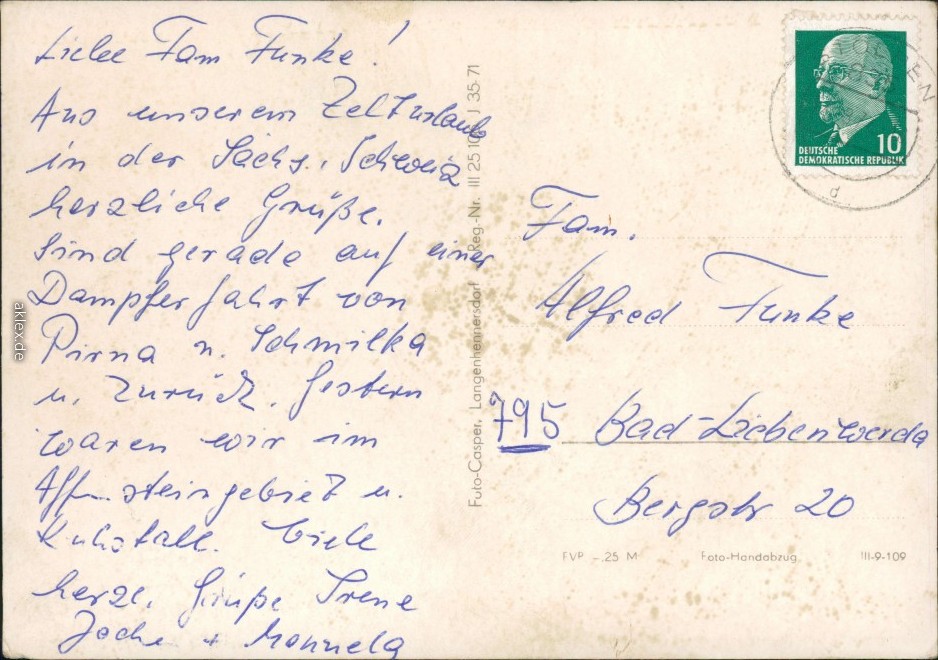 Liebe Fam Funke!
Aus unserem Zelturlaub
in der Sächs. Schweiz
herzliche Grüße.
Sind gerade auf einer
Dampferfahrt von
Pirna n. Schmilka
u. zurück. Gestern
waren wir im
Affensteingebiet u.
Kuhstall. Viele
herzl. Grüße Irene
Joche + Manuela
Foto-Casper, Langenhennersdorf Reg.-Nr. III 25 I 35 71
DEUTSCHE
DEMOKRATISCHE REPUBLIK
10
d
Fam.
Alfred Funke
795 Bad-Liebenwerda
Bergstr 20
EVP -.25 M Foto-Handabzug III-9-109
aklex.de